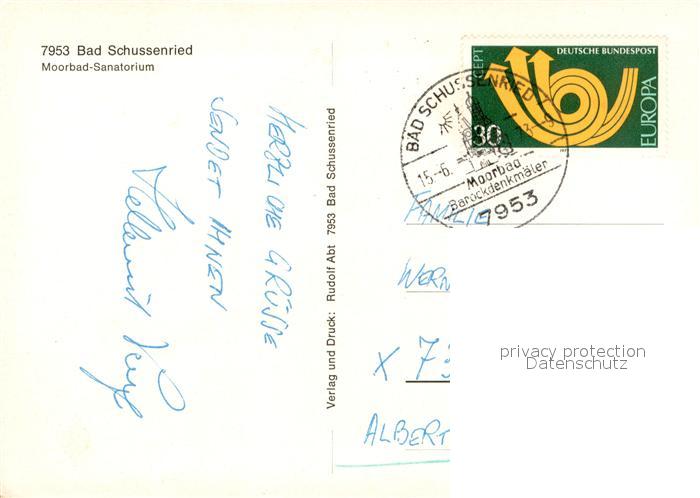 7953 Bad Schussenried
Moorbad-Sanatorium
HERZLICHE GRÜSSE
SENDET IHNEN
Verlag und Druck: Rudolf Abt 7953 Bad Schussenried
CEPT
DEUTSCHE BUNDESPOST
EUROPA
30
BAD SCHUSSENRIED
15.-6. 73-9
Moorbad
Barockdenkmäler
7953
FAMILIE
WERN
X 73
ALBERT
privacy protection
Datenschutz